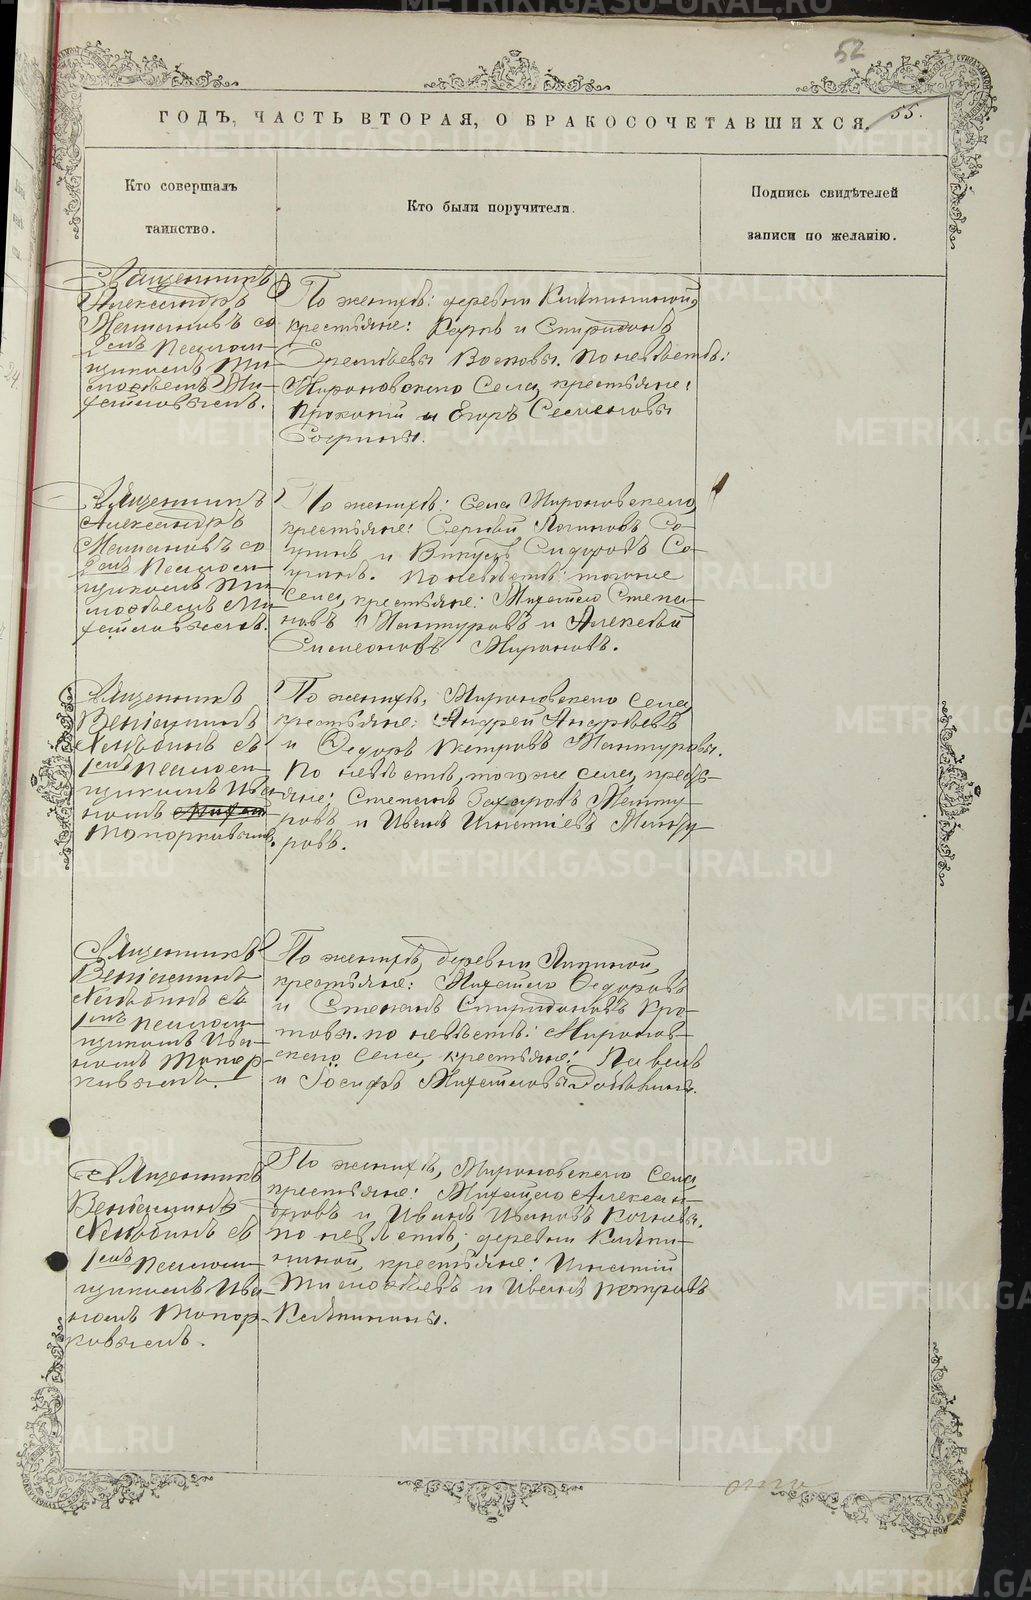 METRIKI.GASO-URAL.RU
52
55.
ГОДЪ, ЧАСТЬ ВТОРАЯ, О БРАКОСОЧЕТАВШИХСЯ.
Кто совершалъ
таинство.
Кто были поручители.
Подпись свидѣтелей
записи по желанію.
Священникъ
Александръ
со
Псалом-
щикомъ Ти-
моѳеемъ Ми-
хайловымъ.
По женихѣ: деревни
крестьяне: Карпъ и Спиридонъ
Волковы. По невѣстѣ:
Мироновскаго Села, крестьяне:
Прокопій и Егоръ Семеновы
Сохрины.
Священникъ
Александръ
со
Псалом-
щикомъ Ти-
моѳеемъ Ми-
хайловымъ.
По женихѣ: села Мироновскаго,
крестьяне: Сергѣй Логиновъ Со-
хринъ и Сидоровъ Со-
хринъ. По невѣстѣ: тогоже
села, крестьяне: Михаилъ Степа-
новъ Мантуровъ и Алексѣй
Симеоновъ Мироновъ.
Священникъ
Веніаминъ
съ
Псалом-
щикомъ Ива-
номъ
Топорковымъ.
По женихѣ, Мироновскаго села,
крестьяне: Андрей Андреевъ
и Ѳедоръ Петровъ Мантуровы.
По невѣстѣ, тогоже села, кресть-
яне: Степанъ Захаровъ Манту-
ровъ и Иванъ Игнатіевъ Манту-
ровъ.
Священникъ
Веніаминъ
съ
Псалом-
щикомъ Ива-
номъ Топор-
ковымъ.
По женихѣ, деревни Липиной,
крестьяне: Михаилъ Ѳедоровъ
и Степанъ Спиридоновъ Кро-
товы. по невѣстѣ: Миронов-
скаго села, крестьяне: Павелъ
и Іосифъ Михайловы
Священникъ
Веніаминъ
съ
Псалом-
щикомъ Ива-
номъ Топор-
ковымъ.
По женихѣ, Мироновскаго Села,
крестьяне: Михаилъ Алексан-
дровъ и Иванъ Ивановъ
по невѣстѣ; деревни
крестьяне: Игнатій
Тимоѳеевъ и Иванъ Петровъ